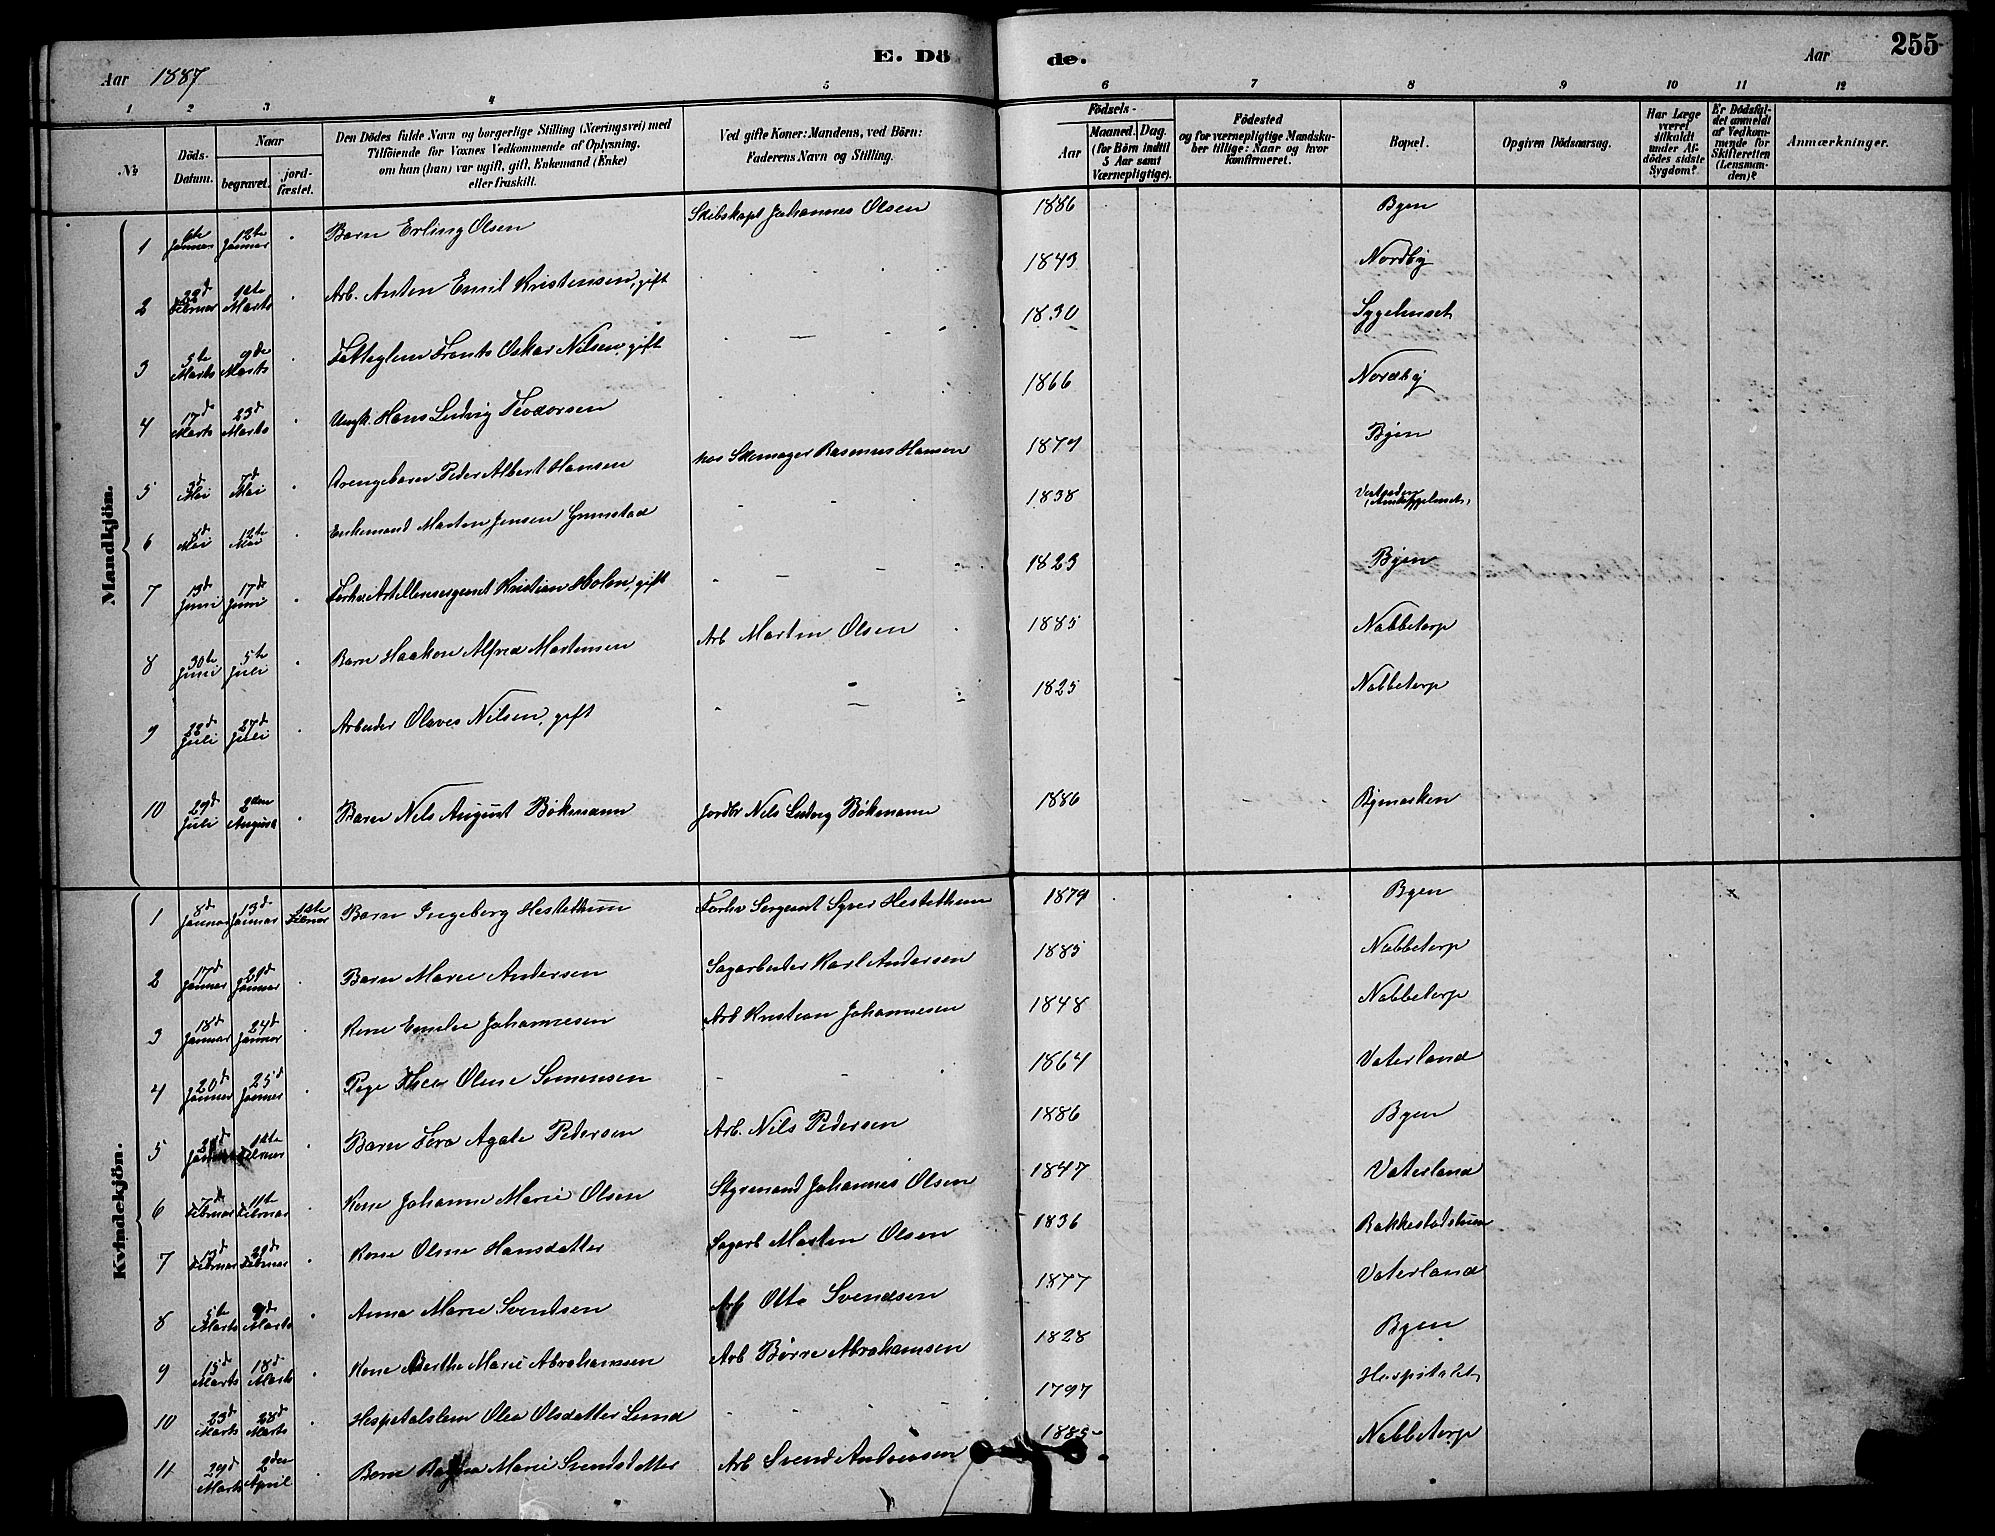 Aar 1887
E. Dö
de.
Aar
255
1 2 3 4 5 6 7 8 9 10 11 12
No
Döds-Datum.
Naar
begravet.
jord-fæstet.
Den Dödes fulde Navn og borgerlige Stilling (Næringsvei) med
Tilföiende for Voxnes Vedkommende af Oplysning,
om han (hun) var ugift, gift, Enkemand (Enke)
eller fraskilt.
Ved gifte Koner: Mandens, ved Börn:
Faderens Navn og Stilling.
Födsels-
Aar
Maaned. Dag.
(for Börn indtil
5 Aar samt
Værnepligtige).
Födested
og for værnepligtige Mandska-
ber tillige: Naar og hvor
konfirmeret.
Bopæl.
Opgiven Dödsaarsag.
Har Læge
været
tilkaldt
under Af-
dödes sidste
Sygdom?
Er Dödsfal-
det anmeldt
af Vedkom-
mende for
Skifteretten
(Lensman-
den)?
Anmærkninger.
Mandkjön.
1 6te Januar 12te Januar Barn Erling Olsen Skibskapt Johannes Olsen 1886 Byen
2 Februar 1ste Marts Arb. Anton Emil Kristensen, gift 1843 Nordby
3 5te Marts 9de Marts Oskar Nilsen, gift 1830 Sygehuset
4 17d Marts 23d Marts Ungk. Hans Ludvig Teodorsen 1866 Nordby
5 3d Mai 7d Mai Drengebarn Peder Albert Hansen hos Skomager Rasmus Hansen 1879 Byen
6 8d Mai 12te Mai Enkemand Marten Jensen Grimstad 1838
7 13d Juni 17d Juni Forhv Artillerisergeant Kristian Holm, gift 1823 Byen
8 30te Juni 5te Juli Barn Haakon Alfred Martinsen Arb Martin Olsen 1885 Nabbetorp
9 22d Juli 27d Juli Arbeider Olaves Nilsen, gift 1825 Nabbetorp
10 29d Juli 2den August Barn Nils August Bökmann Jordbr Nils Ludvig Bökmann 1886 Bymarken
Kvindekjön.
1 8d Januar 13d Januar 1ste Februar Barn Ingeborg Hestethun Forhv Sergeant Syver Hestethun 1879 Byen
2 17d Januar Januar Barn Marie Andersen Sagarbeider Karl Andersen 1885 Nabbetorp
3 18d Januar 24d Januar Kone Emilie Johannesen Arb Kristian Johannesen 1848 Nabbetorp
4 20d Januar 25d Januar Pige Oline Simensen 1864 Vaterland
5 Januar 1ste Februar Barn Agate Pedersen Arb. Nils Pedersen 1886 Byen
6 7d Februar 11te Februar Kone Johanne Marie Olsen Styrmand Johannes Olsen 1847 Vaterland
7 13d Februar Februar Kone Oline Hansdatter Sagarb Martin Olsen 1836
8 5te Marts 9de Marts Anna Marie Svendsen Arb Otto Svendsen 1877 Vaterland
9 15d Marts 18d Marts Kone Berthe Marie Abrahamsen Arb Börre Abrahamsen 1828 Byen
10 23d Marts 28d Marts Hospitalslem Olea Olsdatter Lund 1797 Hospitalet
11 29d Marts 2den April Barn Marie Svendsdatter Arb Svend Andreasen 1885 Nabbetorp